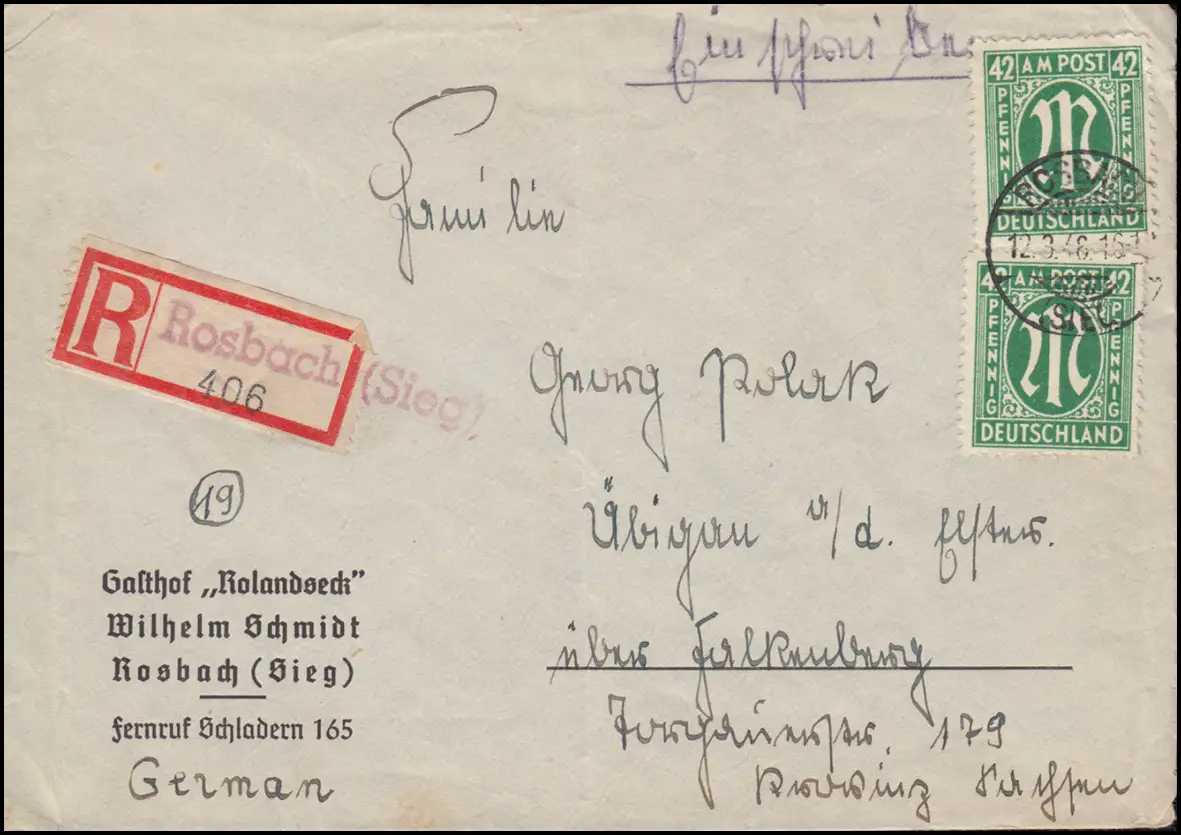 Einschreiben
Familie
Georg Polak
Übigau a/d. Elster.
über Falkenberg
Torgauerstr. 179
Provinz Sachsen
R Rosbach (Sieg)
406
19
Gasthof „Rolandseck”
Wilhelm Schmidt
Rosbach (Sieg)
Fernruf Schladern 165
German
42 AM POST 42
PFENNIG PFENNIG
DEUTSCHLAND
ROSBACH
12.3.46.16
SIEG
42 AM POST 42
PFENNIG PFENNIG
DEUTSCHLAND